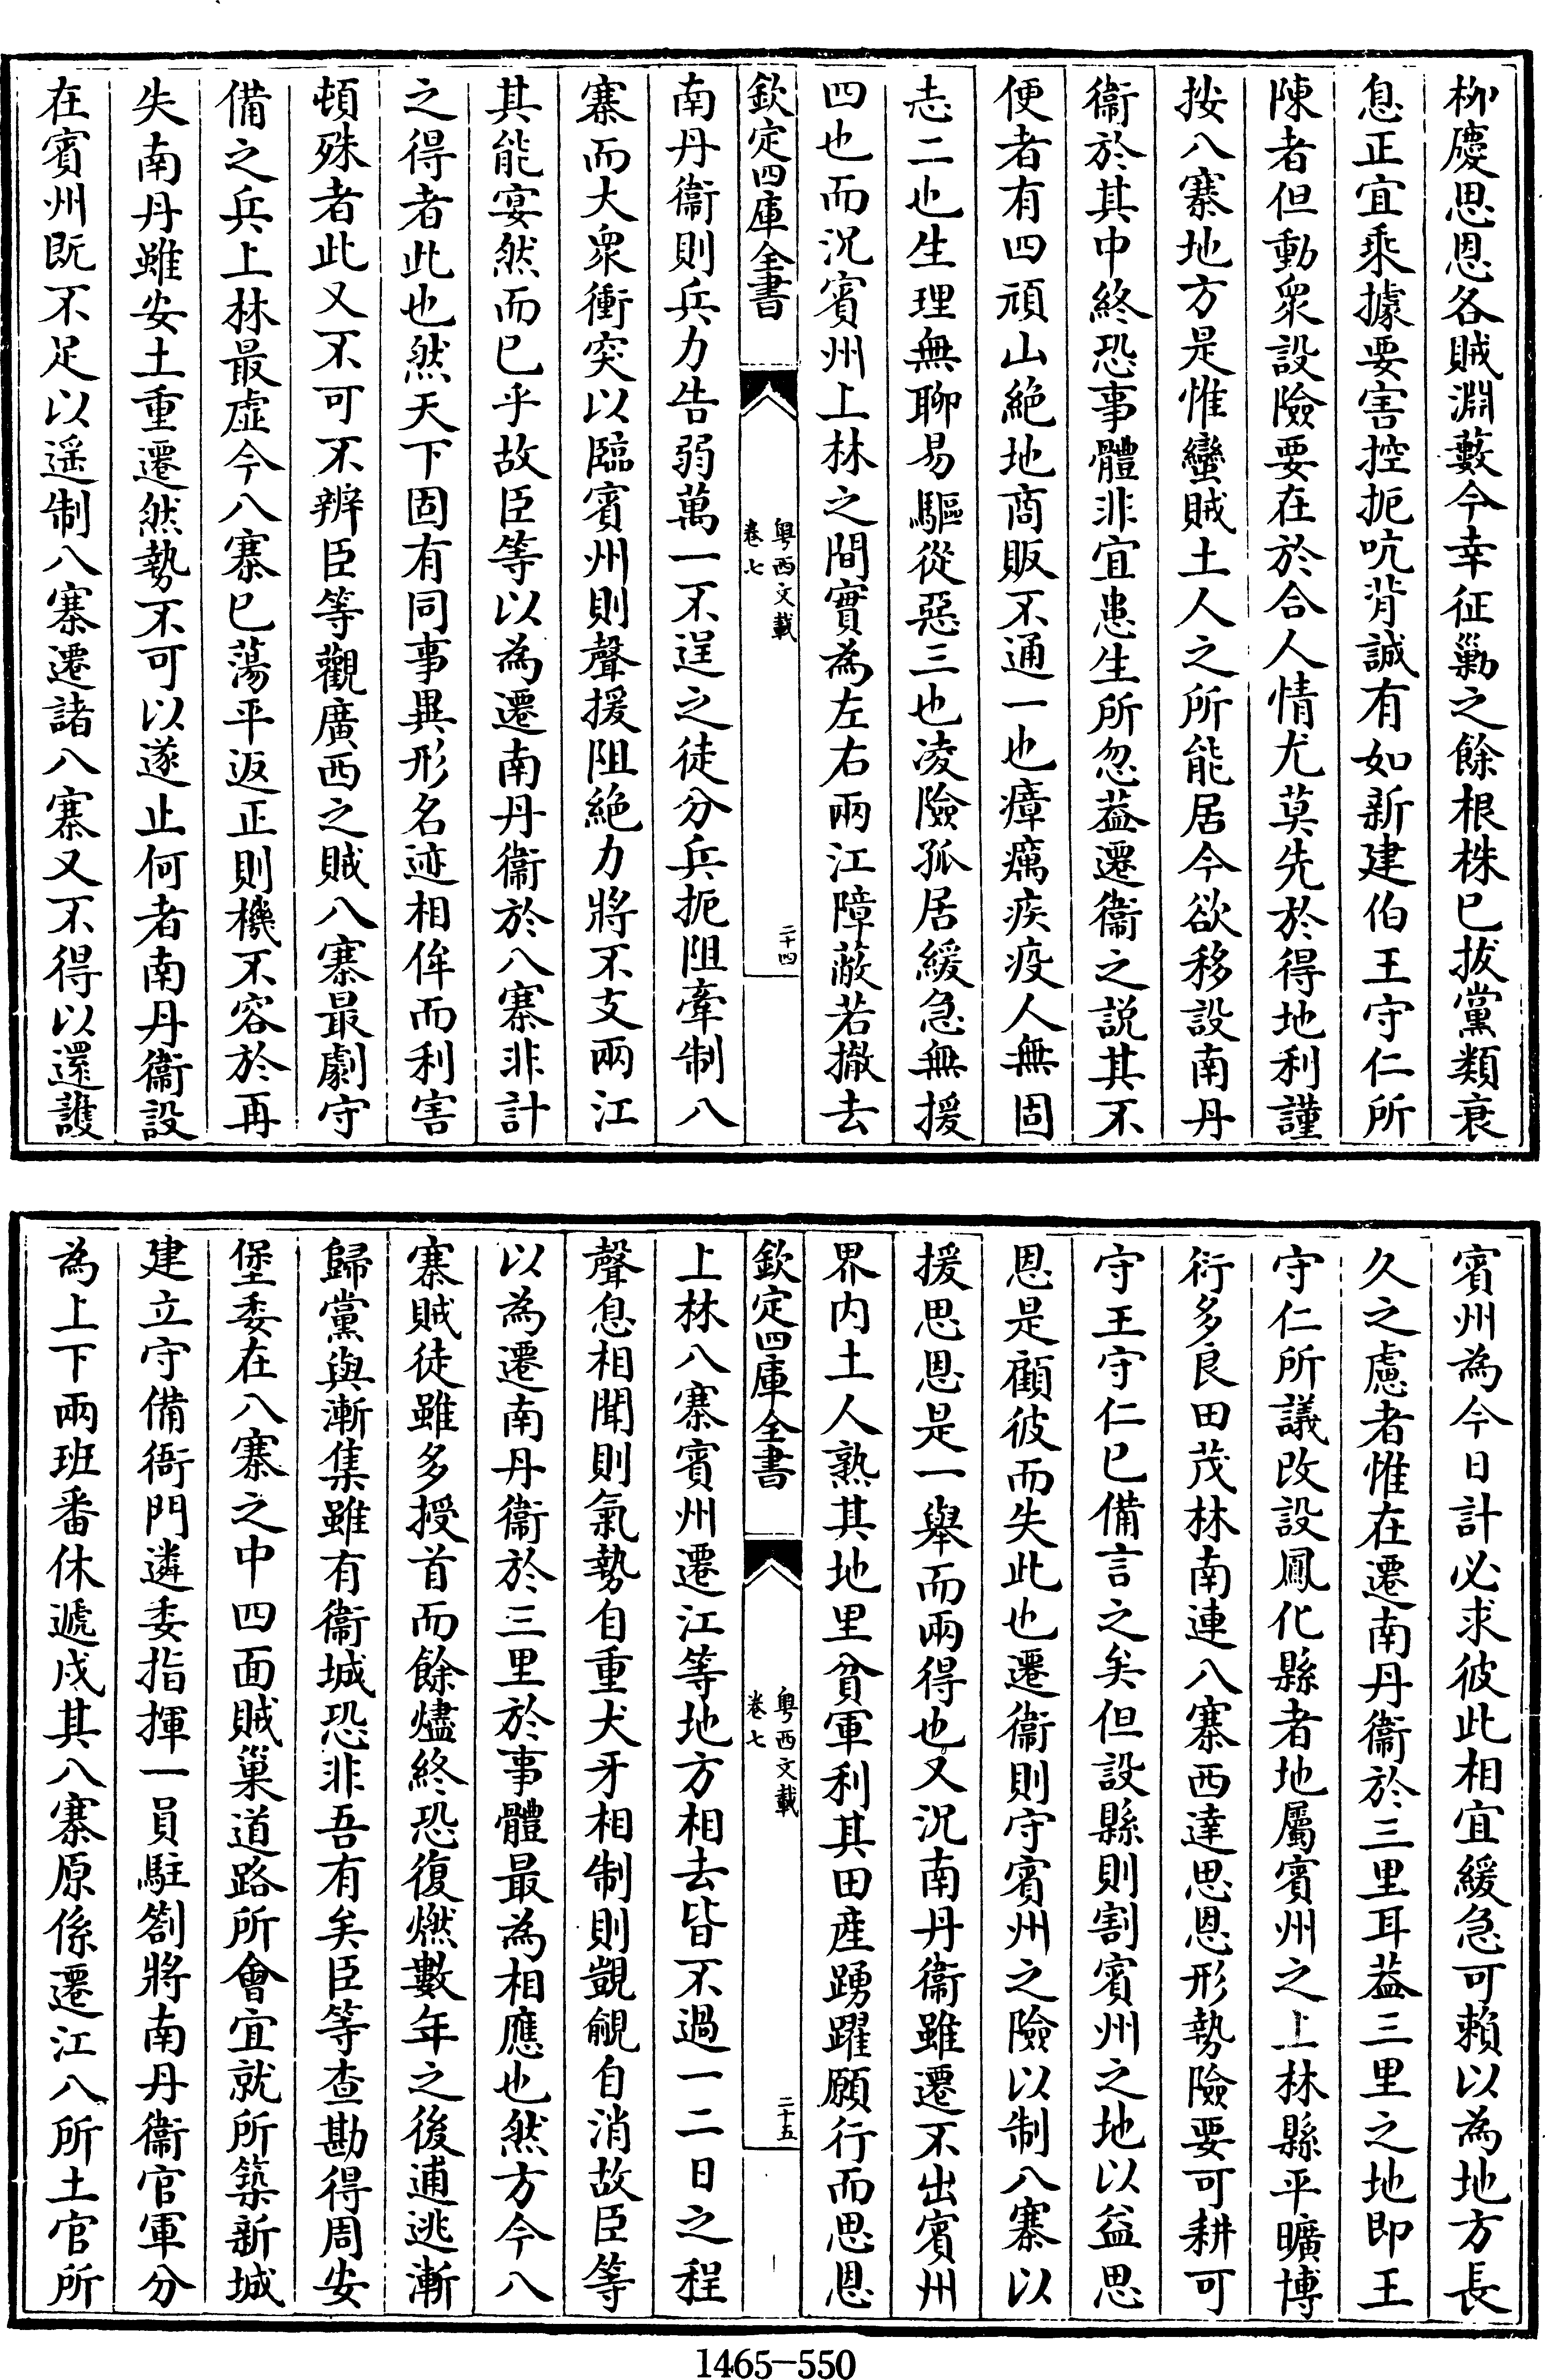 柳慶思恩各賊淵藪今幸征勦之餘根株已拔黨類衰
息正宜乘據要害控扼吭背誠有如新建伯王守仁所
陳者但動衆設險要在於合人情尤莫先於得地利謹
按八寨地方是惟蠻賊土人之所能居今欲移設南丹
衞於其中終恐事體非宜患生所忽葢遷衞之説其不
便者有四頑山絶地商販不通一也瘴癘疾疫人無固
志二也生理無聊易驅從惡三也凌險孤居緩急無援
四也而況賓州上林之間實為左右兩江障蔽若撤去
欽定四庫全書
粤西文載
卷七
二十四
南丹衞則兵力告弱萬一不逞之徒分兵扼阻牽制八
寨而大衆衝突以臨賓州則聲援阻絶力將不支兩江
其能宴然而已乎故臣等以為遷南丹衞於八寨非計
之得者此也然天下固有同事異形名迹相侔而利害
頓殊者此又不可不辨臣等觀廣西之賊八寨最劇守
備之兵上林最虛今八寨已蕩平返正則機不容於再
失南丹雖安土重遷然勢不可以遂止何者南丹衞設
在賓州既不足以遥制八寨遷諸八寨又不得以還護
賓州為今日計必求彼此相宜緩急可賴以為地方長
久之慮者惟在遷南丹衞於三里耳葢三里之地即王
守仁所議改設鳳化縣者地屬賓州之上林縣平曠博
衍多良田茂林南連八寨西達思恩形勢險要可耕可
守王守仁已備言之矣但設縣則割賓州之地以益思
恩是顧彼而失此也遷衞則守賓州之險以制八寨以
援思恩是一舉而兩得也又況南丹衞雖遷不出賓州
界内土人熟其地里貧軍利其田産踴躍願行而思恩
欽定四庫全書
粤西文載
卷七
二十五
上林八寨賓州遷江等地方相去皆不過一二日之程
聲息相聞則氣勢自重犬牙相制則覬覦自消故臣等
以為遷南丹衞於三里於事體最為相應也然方今八
寨賊徒雖多授首而餘燼終恐復燃數年之後逋逃漸
歸黨與漸集雖有衞城恐非吾有矣臣等查勘得周安
堡委在八寨之中四面賊巢道路所會宜就所築新城
建立守備衙門遴委指揮一員駐劄將南丹衞官軍分
為上下兩班番休遞戍其八寨原係遷江八所土官所
1465-550